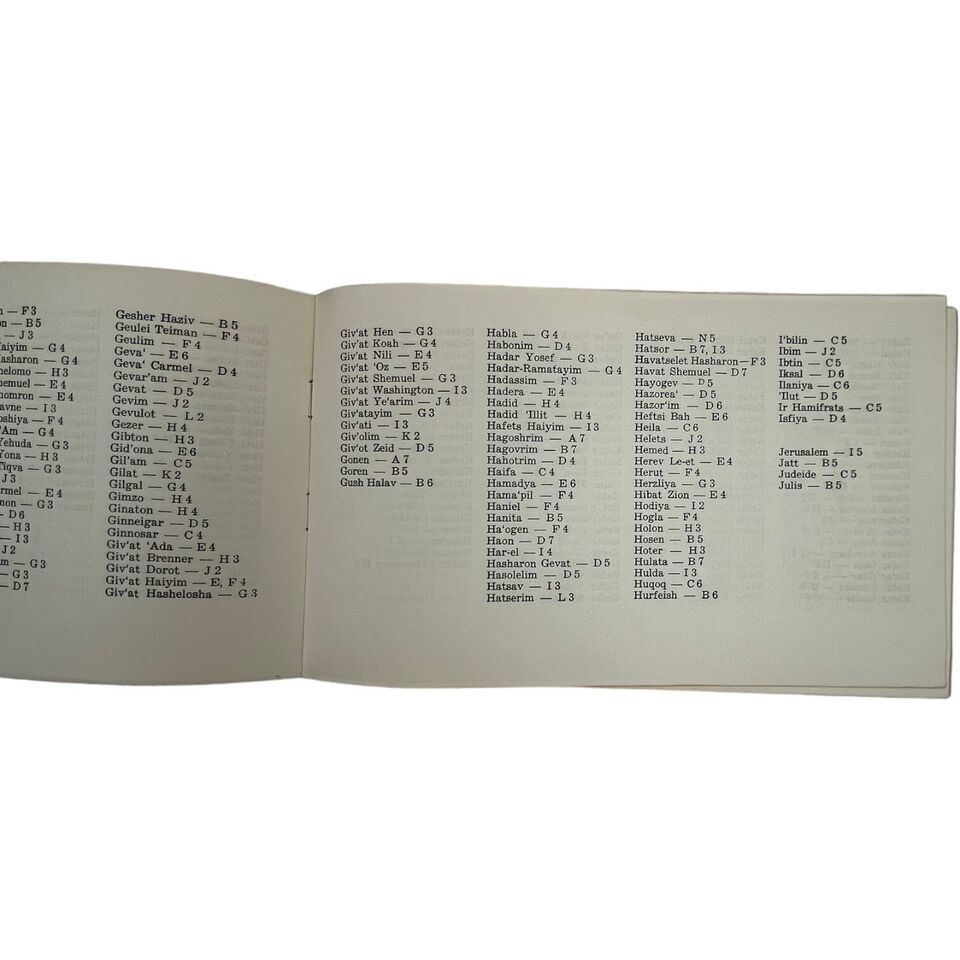 — F 3
— B 5
— J 3
— G 4
— G 4
— H 3
— E 4
— E 4
— I 3
— F 4
— G 3
— H 3
— G 3
J 3
— E 4
— G 3
— D 6
— H 3
— I 3
J 2
— G 3
— G 3
— D 7
Gesher Haziv — B 5
Geulei Teiman — F 4
Geulim — F 4
Geva‘ — E 6
Geva‘ Carmel — D 4
Gevar‘am — J 2
Gevat — D 5
Gevim — J 2
Gevulot — L 2
Gezer — H 4
Gibton — H 3
Gid‘ona — E 6
Gil‘am — C 5
Gilat — K 2
Gilgal — G 4
Gimzo — H 4
Ginaton — H 4
Ginneigar — D 5
Ginnosar — C 4
Giv‘at ‘Ada — E 4
Giv‘at Brenner — H 3
Giv‘at Dorot — J 2
Giv‘at Haiyim — E, F 4
Giv‘at Hashelosha — G 3
Giv‘at Hen — G 3
Giv‘at Koah — G 4
Giv‘at Nili — E 4
Giv‘at ‘Oz — E 5
Giv‘at Shemuel — G 3
Giv‘at Washington — I 3
Giv‘at Ye‘arim — J 4
Giv‘atayim — G 3
Giv‘ati — I 3
Giv‘olim — K 2
Giv‘ot Zeid — D 5
Gonen — A 7
Goren — B 5
Gush Halav — B 6
Habla — G 4
Habonim — D 4
Hadar Yosef — G 3
Hadar-Ramatayim — G 4
Hadassim — F 3
Hadera — E 4
Hadid — H 4
Hadid ‘Illit — H 4
Hafets Haiyim — I 3
Hagoshrim — A 7
Hagovrim — B 7
Hahotrim — D 4
Haifa — C 4
Hamadya — E 6
Hama‘pil — F 4
Haniel — F 4
Hanita — B 5
Ha‘ogen — F 4
Haon — D 7
Har-el — I 4
Hasharon Gevat — D 5
Hasolelim — D 5
Hatsav — I 3
Hatserim — L 3
Hatseva — N 5
Hatsor — B 7, I 3
Havatselet Hasharon — F 3
Havat Shemuel — D 7
Hayogev — D 5
Hazorea‘ — D 5
Hazor‘im — D 6
Heftsi Bah — E 6
Heila — C 6
Helets — J 2
Hemed — H 3
Herev Le-et — E 4
Herut — F 4
Herzliya — G 3
Hibat Zion — E 4
Hodiya — I 2
Hogla — F 4
Holon — H 3
Hosen — B 5
Hoter — H 3
Hulata — B 7
Hulda — I 3
Huqoq — C 6
Hurfeish — B 6
I‘bilin — C 5
Ibim — J 2
Ibtin — C 5
Iksal — D 6
Ilaniya — C 6
‘Ilut — D 5
Ir Hamifrats — C 5
Isfiya — D 4
Jerusalem — I 5
Jatt — B 5
Judeide — C 5
Julis — B 5